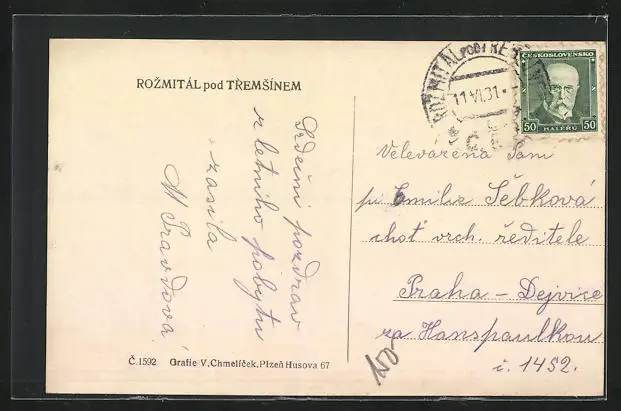 ROŽMITÁL pod TŘEMŠÍNEM
Srdečný pozdrav
z letního pobytu
zasílá
M Pravdová
Č.1592 Grafie V. Chmelíček, Plzeň Husova 67
ROŽMITÁL POD TŘEMŠ
11.VI.31
ČESKOSLOVENSKO
50 HALÉŘŮ 50
Velevážená Paní
pí Emilie Šebková
choť vrch. ředitele
Praha - Dejvice
za Hanspaulkou
č. 1452.